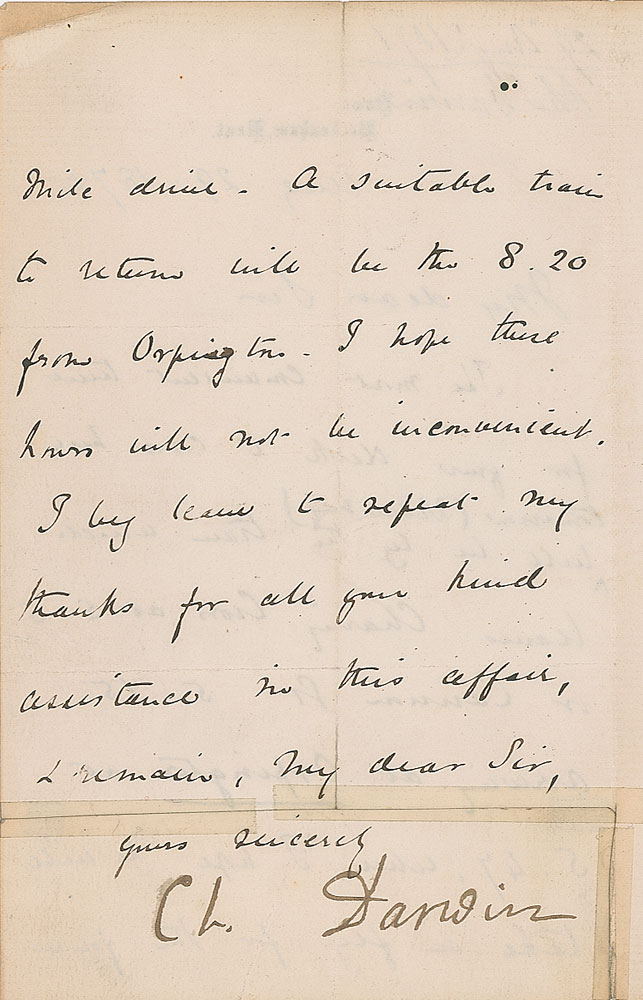 mile drive. A suitable train
to return will be the 8.20
from Orpington. I hope these
hours will not be inconvenient.
I beg leave to repeat my
thanks for all your kind
assistance in this affair,
& remain, my dear Sir,
yours sincerely
Ch. Darwin